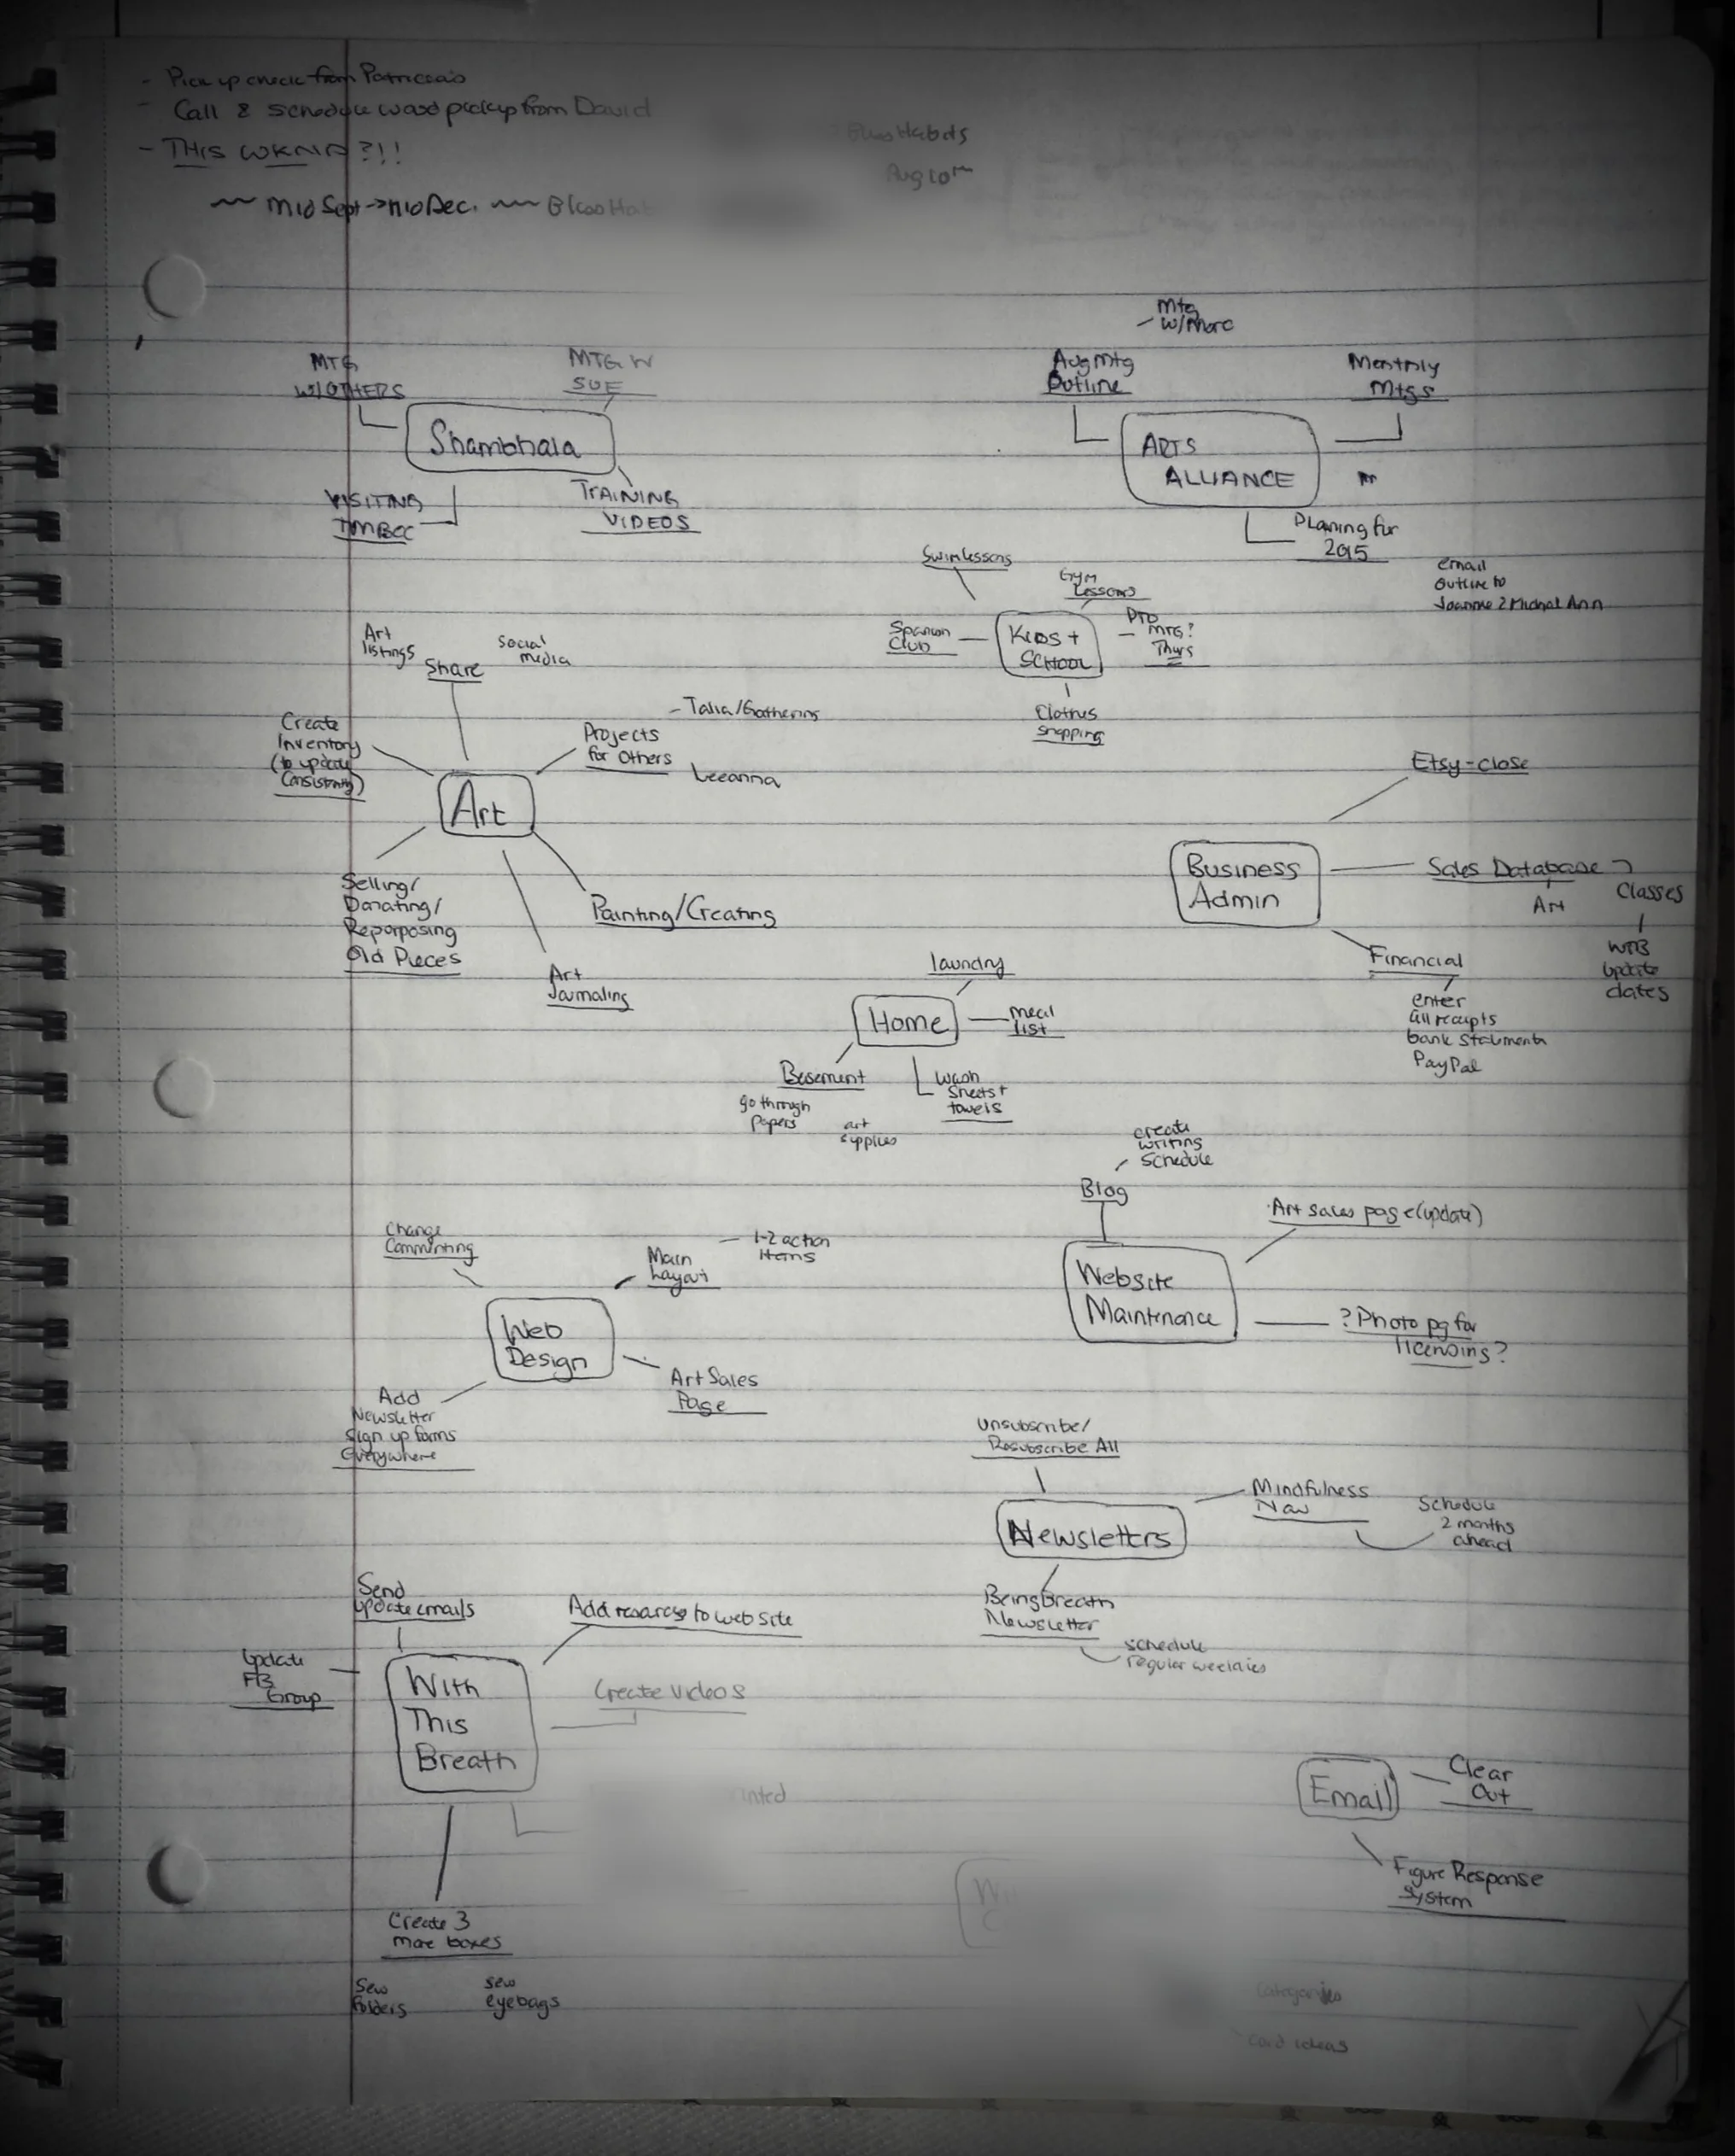 - Pick up check from Patriccia's
- Call & schedule wood pickup from David
- THIS WKND?!!
~~ Mid Sept -> Mid Dec. ~~
Aug 10th
Mtg
- w/Marc
MTG
W/OTHERS
MTG W
SUE
Shambhala
VISITING
TMBCC
TRAINING
VIDEOS
Aug Mtg
Outline
Monthly
Mtgs
ARTS
ALLIANCE
Planing for
2015
email
outline to
Joanne & Michal Ann
Swim lessons
Gym
Lessons
Spanish
Club
Kids +
SCHOOL
PTO
MTG?
Thurs
Clothes
shopping
Art
listings
Share
Social
media
Create
Inventory
(to update
Consistently)
Projects
for Others
- Talia/Gathering
Leeanna
Art
Selling/
Donating/
Reporposing
Old Pieces
Art
Journaling
Painting/Creating
Etsy-close
Business
Admin
Sales Database
Art
Classes
WTB
update
dates
Financial
enter
all receipts
bank statements
PayPal
laundry
Home
meal
list
Basement
go through
papers
art
supplies
Wash
Sheets +
towels
create
writing
Schedule
Blog
Art sales page (update)
Website
Maintenance
? Photo pg for
licensing?
Change
Commenting
Main
Layout
- 1-2 action
items
Web
Design
Add
Newsletter
Sign up forms
Everywhere
Art Sales
Page
Unsubscribe/
Resubscribe All
Newsletters
Mindfulness
Now
Schedule
2 months
ahead
Being Breath
Newsletter
schedule
regular weeklies
Send
update emails
Add resources to web site
Update
FB
Group
With
This
Breath
Create Videos
Create 3
more boxes
Sew
folders
sew
eyebags
Email
Clear
Out
Figure Response
System
Categories
Card ideas